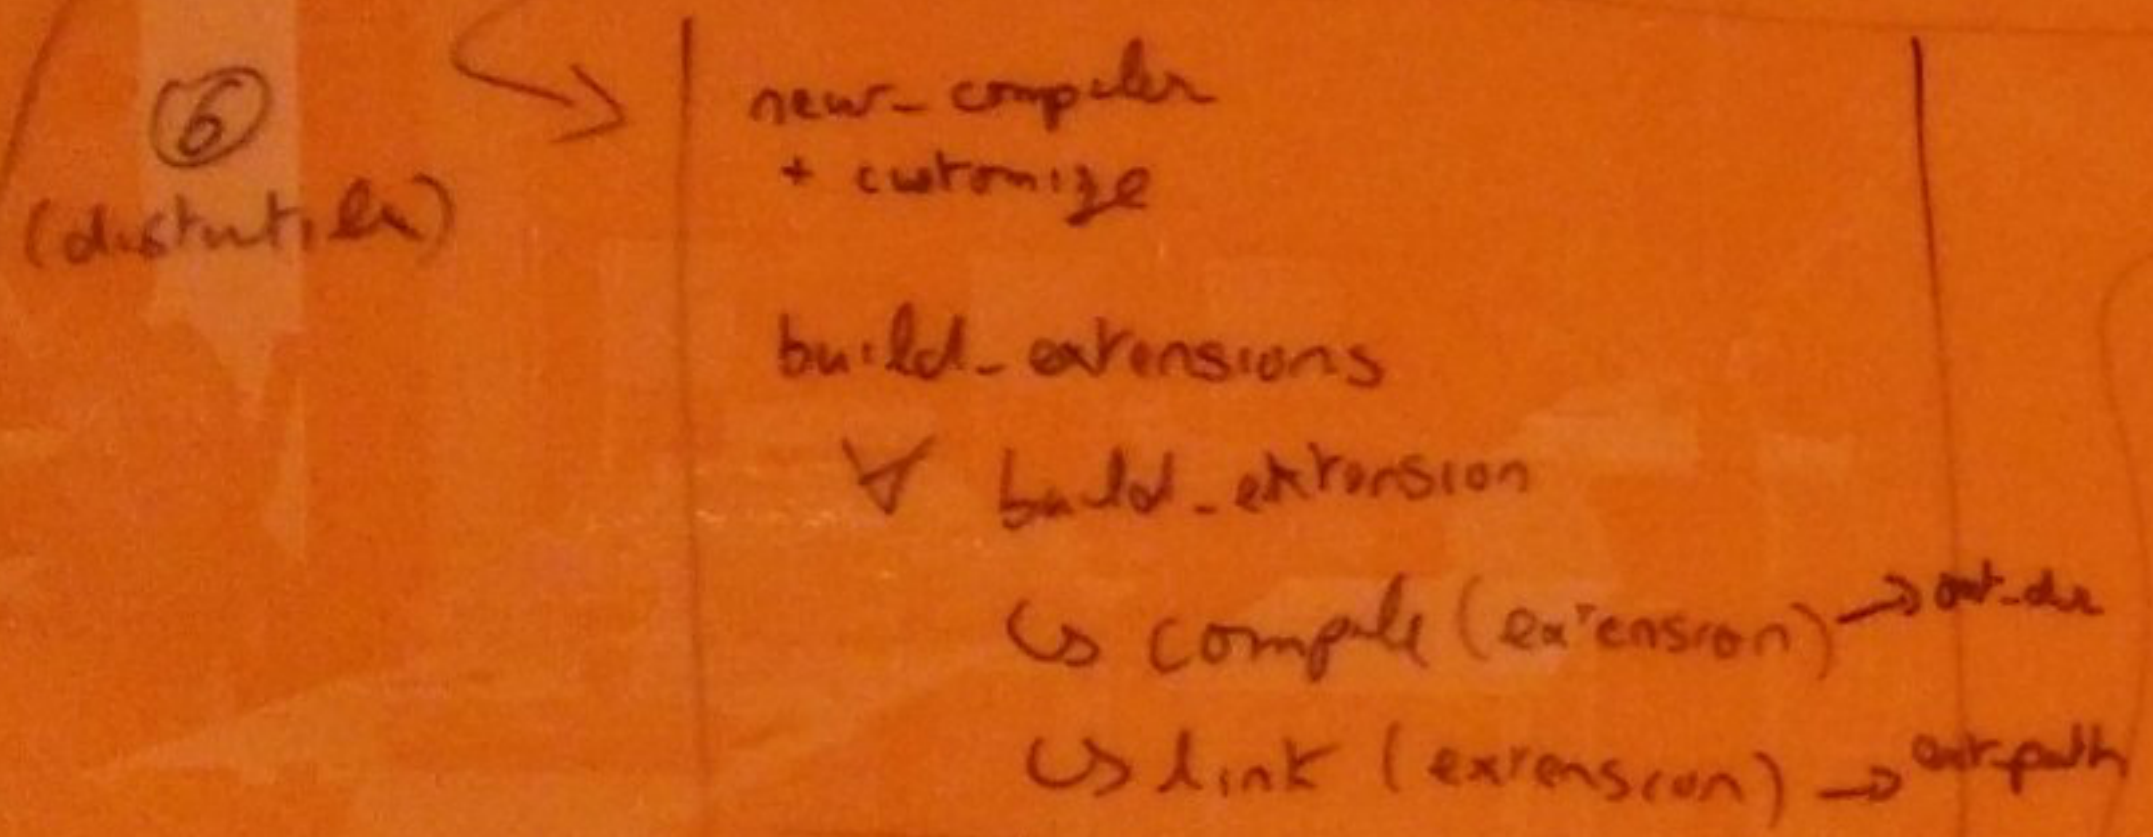 ⑥
(distutils)
new_compiler
+ customize
build_extensions
∀ build_extension
↪ compile (extension) → out_dir
↪ link (extension) → ext_path